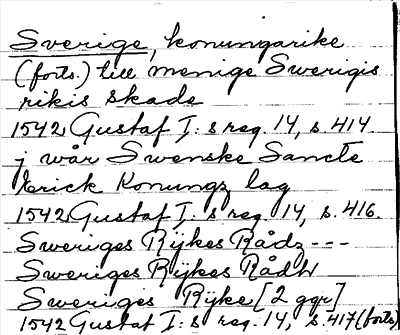 Sverige, konungarike
(forts.) till menige Swerigis
rikis skade
1542 Gustaf I: s reg. 14, s. 414.
j wår Swenske Sancte
Erick Konungz lag
1542 Gustaf I: s reg. 14, s. 416.
Sweriges Rijkes Rådz ---
Sweriges Rijkes Rådh
Sweriges Rijke [2 ggr]
1542 Gustaf I: s reg. 14, s. 417 (forts)